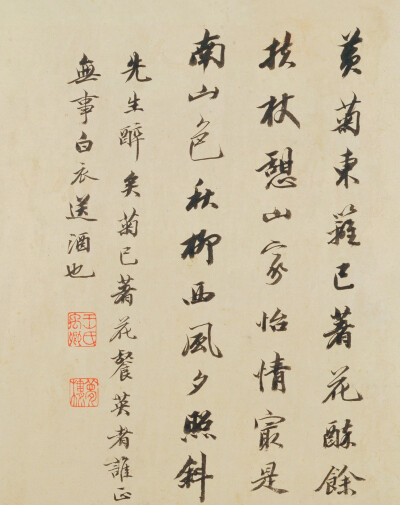 黃菊東籬已著花酴餘
扶杖憩山家怡情㝡是
南山色秋柳西風夕照斜
先生醉矣菊已著花餐英者誰正
無事白衣送酒也